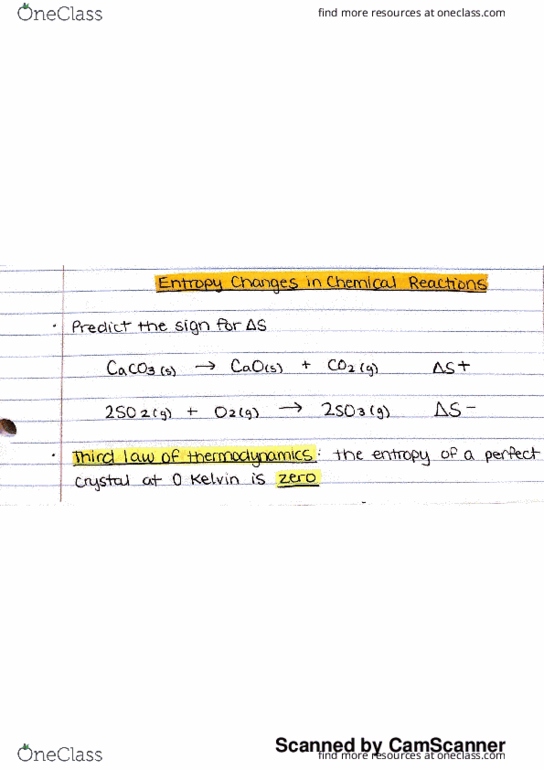 OneClass
find more resources at oneclass.com
Entropy Changes in Chemical Reactions
· Predict the sign for ΔS
CaCO3(s) → CaO(s) + CO2(g) ΔS+
2SO2(g) + O2(g) → 2SO3(g) ΔS-
· Third law of thermodynamics: the entropy of a perfect
crystal at 0 Kelvin is zero
Scanned by CamScanner
OneClass
find more resources at oneclass.com